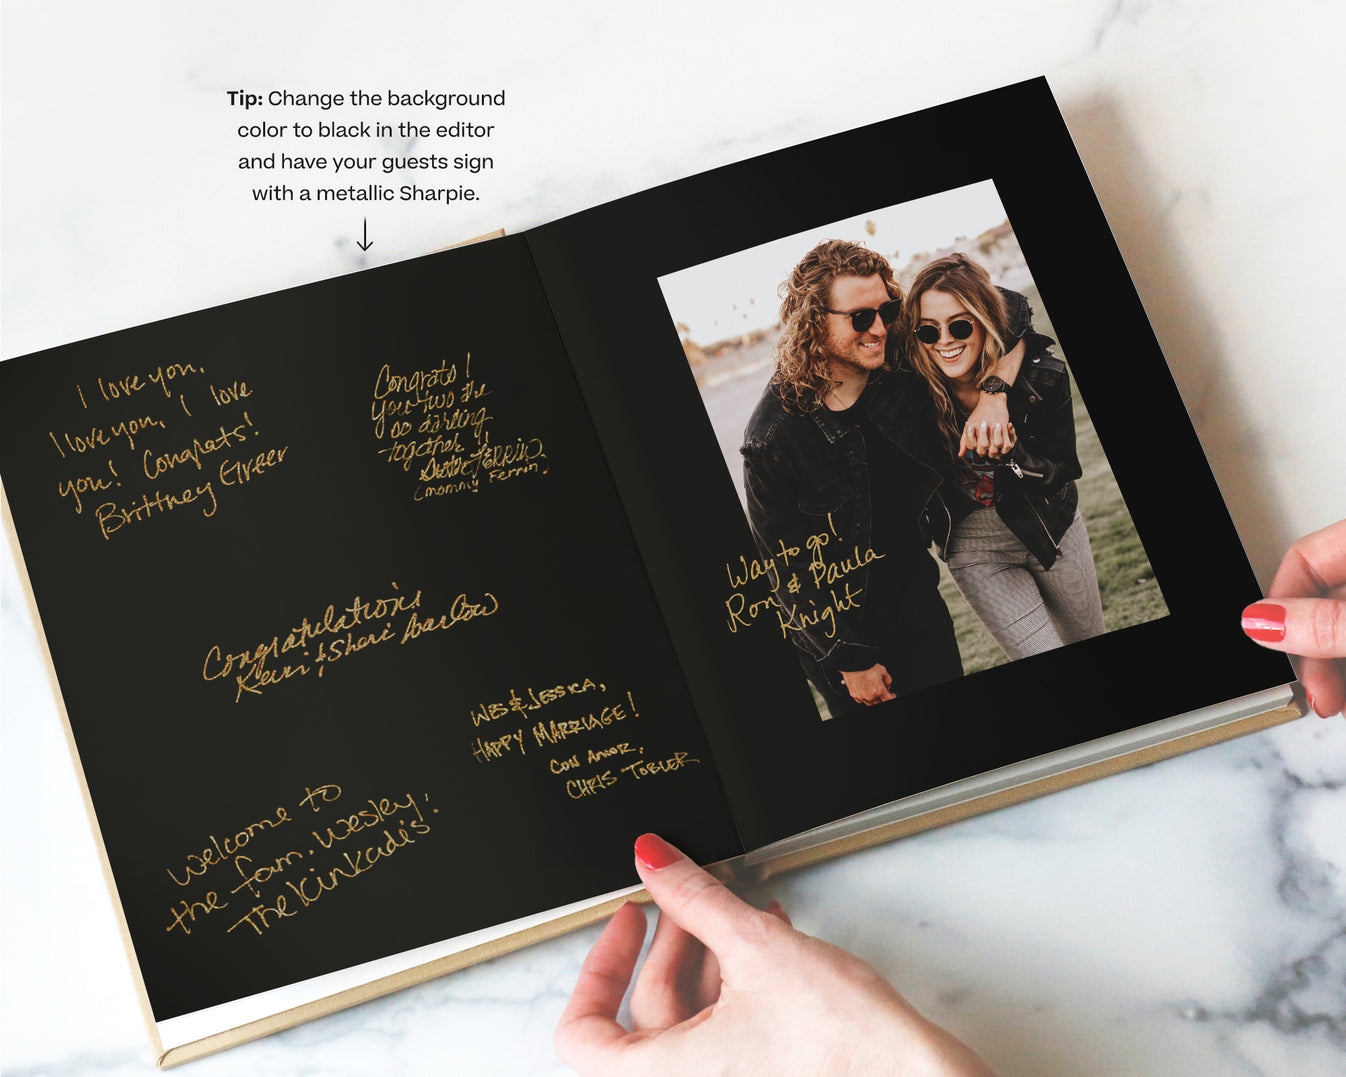 Tip: Change the background
color to black in the editor
and have your guests sign
with a metallic Sharpie.
I love you,
I love you, I love
you! Congrats!
Brittney Greer
Congrats!
you two are
so darling
together!
Ferrin
(mommy Ferrin)
Congratulations
Kevin & Sheri Barlow
WES & JESSICA,
HAPPY MARRIAGE!
CON AMOR,
CHRIS TOBLER
Welcome to
the fam, Wesley!
The Kinkade's
Way to go!
Ron & Paula
Knight